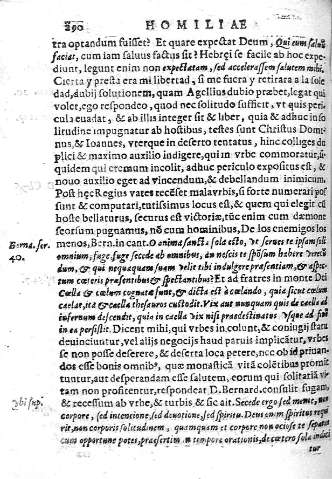 290 HOMILIAE
tra optandum fuisset? Et quare expectat Deum, Qui eum saluū
faciat, cum iam saluus factus sit? Hebręi se facile ab hoc expe-
diunt, legunt enim non expectatam, sed accerassem salutem mihi.
Cierta y presta era mi libertad, si me fuera y retirara a la soledad,
dubij solutionem, quam Agellius dubio præbet, legat qui
volet, ego respondeo, quod nec solitudo sufficit, vt quis peri-
cula euadat, & ab illis integer sit & liber, quia & adhuc in so-
litudine impugnatur ab hostibus, testes sunt Christus Domi-
nus, & Ioannes, vterque in deserto tentatus, hinc colliges du-
plici & maximo auxilio indigere, qui in vrbe commoratur, si-
quidem qui eremum incolit, adhuc periculo expositus est, &
nouo auxilio eget ad vincendum, & debellandum inimicum.
Post hęc Regius vates recęset mala vrbis, si forte numerari pos-
sunt & computari, tutissimus locus est, & quem qui elegit cū
hoste bellaturus, securus est victoriæ, tūc enim cum dæmone
seorsum pugnamus, nō cum hominibus, De los enemigos los
menos, Bern. in cant. O anima sancta sola esto, vt serues te ipsam soli
Berna. ser. 40.
omnium, fuge, fuge secede ab omnibus, an nescis te spōsum habere verecū
dum, & qui nequaquam suam velit tibi indulgere præsentiam, & aspe-
ctum cæteris præsentibus & spectantibus? Et ad fratres in monte Dei
Cælla & cælum cognata sunt, & dicta est à cælando, quia sicut cælum
cælat, ita & cælla thesauros custodit. Vix aut nunquam quis de cælla ad
infernum descendit, quia in cælla vix nisi prædestinatus vsque ad finē
in ea persistit. Dicent mihi, qui vrbes incolunt, & coniugij statu
deuinciuntur, vel alijs negocijs haud paruis implicātur, vrbes
se non posse deserere, & deserta loca petere, ncc ob id priuan-
dos esse bonis omnib9, quæ monastica vitā colētibus promit
tuntur, aut desperandam esse salutem, eorum qui solitariā vi-
tam non profitentur, respondeat D. Bernard. consulit fugam,
Vbi supr.
& recessum ab vrbe, & turbis, & sic ait. Secede ergo sed mente, non
corpore, sed intencione, sed deuotione, sed spiritu. Deus enim spiritus requi
rit, non corporis solitudinem, quamquam et corpore non ociose te separas
cum opportune potes, præsertim in tempore orationis, de cætero sola indici
tur